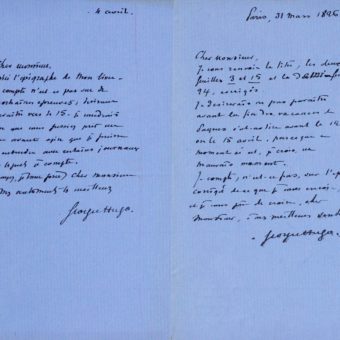 4 avril.
Cher monsieur,
l'épigraphe de mon livre
compte n'est ce pas sur de
prochaines épreuves;
paraître vers le 15. il
que vous
avant afin que je puisse
avec certains journaux
lesquels je compte.
cher monsieur
mes sentiments les meilleurs
Georges Hugo
Paris, 31 mars 1896
Cher monsieur,
Je vous renvoie le titre, les deux
feuilles 3 et 15 et la
24, corrigés
Je désirerais ne pas paraître
avant la fin des vacances de
Pâques c'est-à-dire avant le 12
ou le 15 avril, parce que ce
moment ci est, je crois, un
mauvais moment.
Je compte, n'est-ce pas, sur
corrigé de ce que je vous envoie,
et je vous prie de croire, cher
monsieur, à mes meilleurs
Georges Hugo